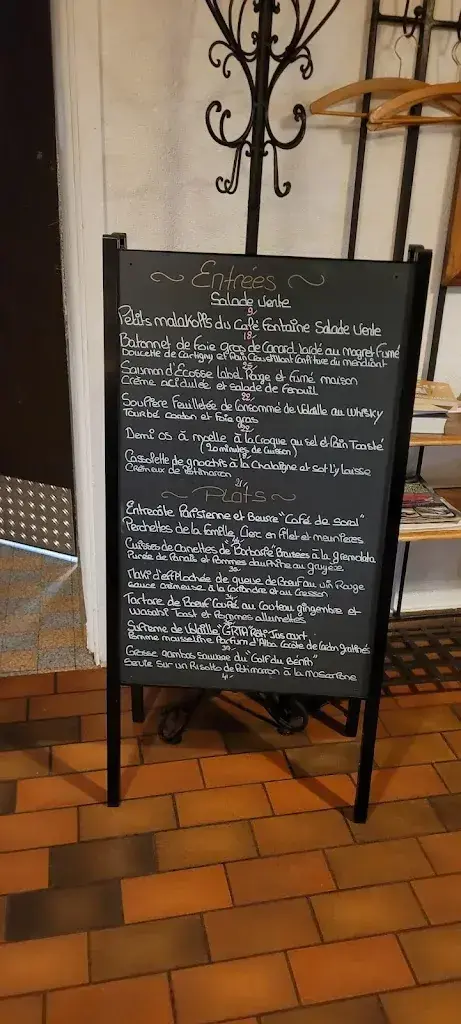 ~ Entrées ~
Salade verte
9
Petits malakoffs du Café Fontaine Salade verte
18
Batonnet de foie gras de canard lardé au magret fumé
Doucette de cartigny et Pain croustillant confiture du mendiant
25
Saumon d'Ecosse Label Rouge et fumé maison
Crème acidulée et salade de fenouil
22
Soupière feuilletée de consommé de volaille au Whisky
Tourbé cardon et foie gras
Demi os à moelle à la croque au sel et Pain Toasté
(20 minutes de cuisson)
18
Cassolette de gnocchis à la châtaigne et sot l'y laisse
Crémeux de Potimarron
21
~ Plats ~
Entrecôte Parisienne et Beurre "Café de
Perchettes de la famille, Clerc en filet et meunières
Cuisses de canettes de Barbarie Braisées à la gremolata
Purée de Panais et Pommes dauphine au gruyère
Maki d'effilochée de queue de Boeuf au vin Rouge
sauce crémeuse à la Coriandre et au cresson
34
Tartare de Boeuf Coupé au Couteau gingembre et
Wasabi Toast et Pommes allumettes
Suprême de Volaille GRTA Roti Jus court
Pomme mousseline Parfum d'Alba Cocotte de Cardon gratinés
39
Grosse gambas sauvage du "Golf du Bénin"
Servie sur un Risotto de Potimarron à la mascarpone
41